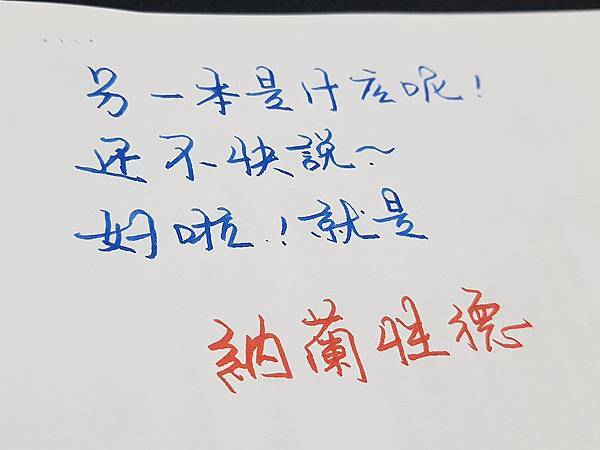 另一本是什広呢！
还不快說～
好啦！就是
納蘭性德